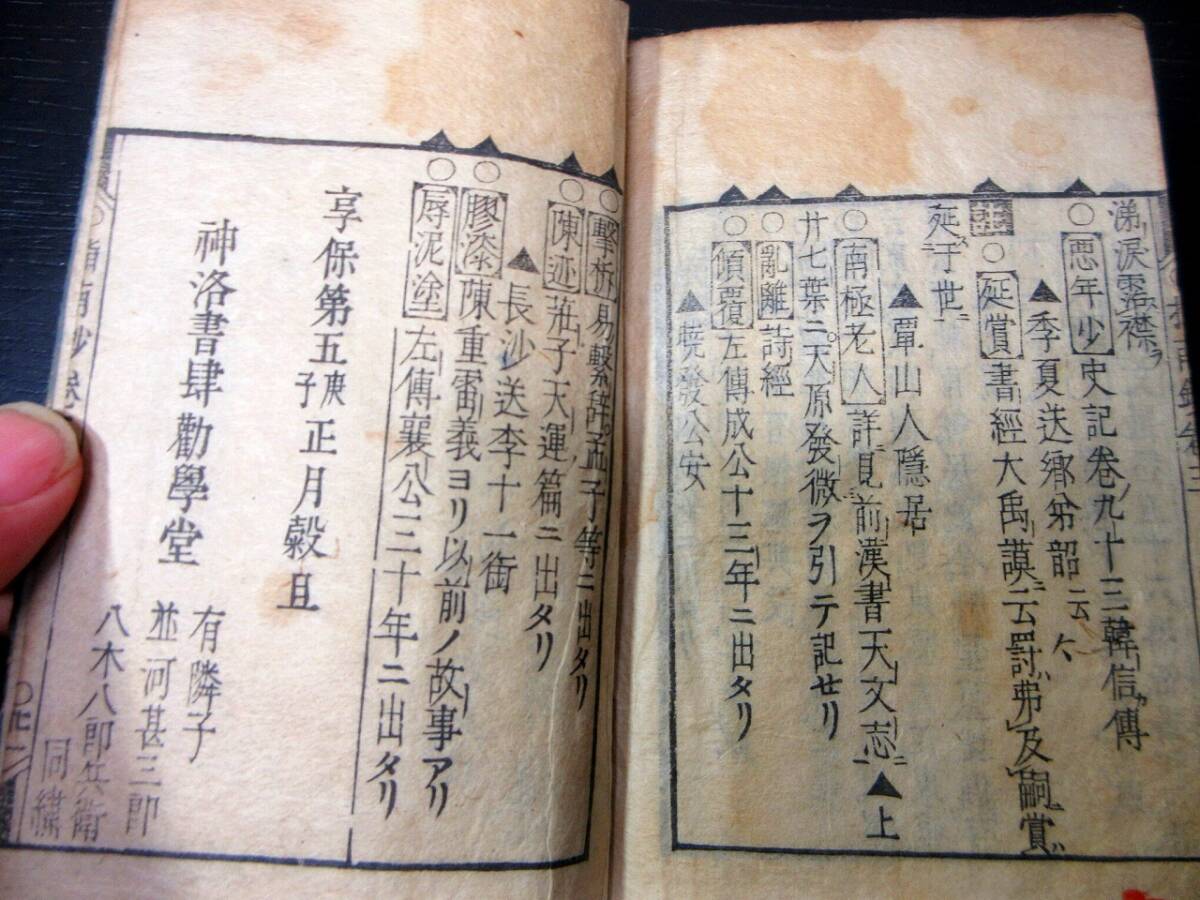 涕涙霑襟ヲ
○悪年少史記巻九十三韓信傳
▲季夏送郷弟韶云々
○延賞書經大禹謨ニ云罰弗及嗣賞
延于世
▲單山人隱居
○南極老人詳見前漢書天文志ニ▲上
廿七葉ニ天原發微ヲ引テ記セリ
○亂離詩經
○傾覆左傳成公十三年ニ出タリ
▲曉發公安
○擊柝易繫辭孟子等ニ出タリ
○陳迹莊子天運篇ニ出タリ
▲長沙送李十一銜
○膠漆陳重雷義ヨリ以前ノ故事アリ
○辱泥塗左傳襄公三十年ニ出タリ
享保第五庚子正月穀旦
神洛書肆勸學堂
有隣子
並河甚三郎
八木八郎兵衛
同繡